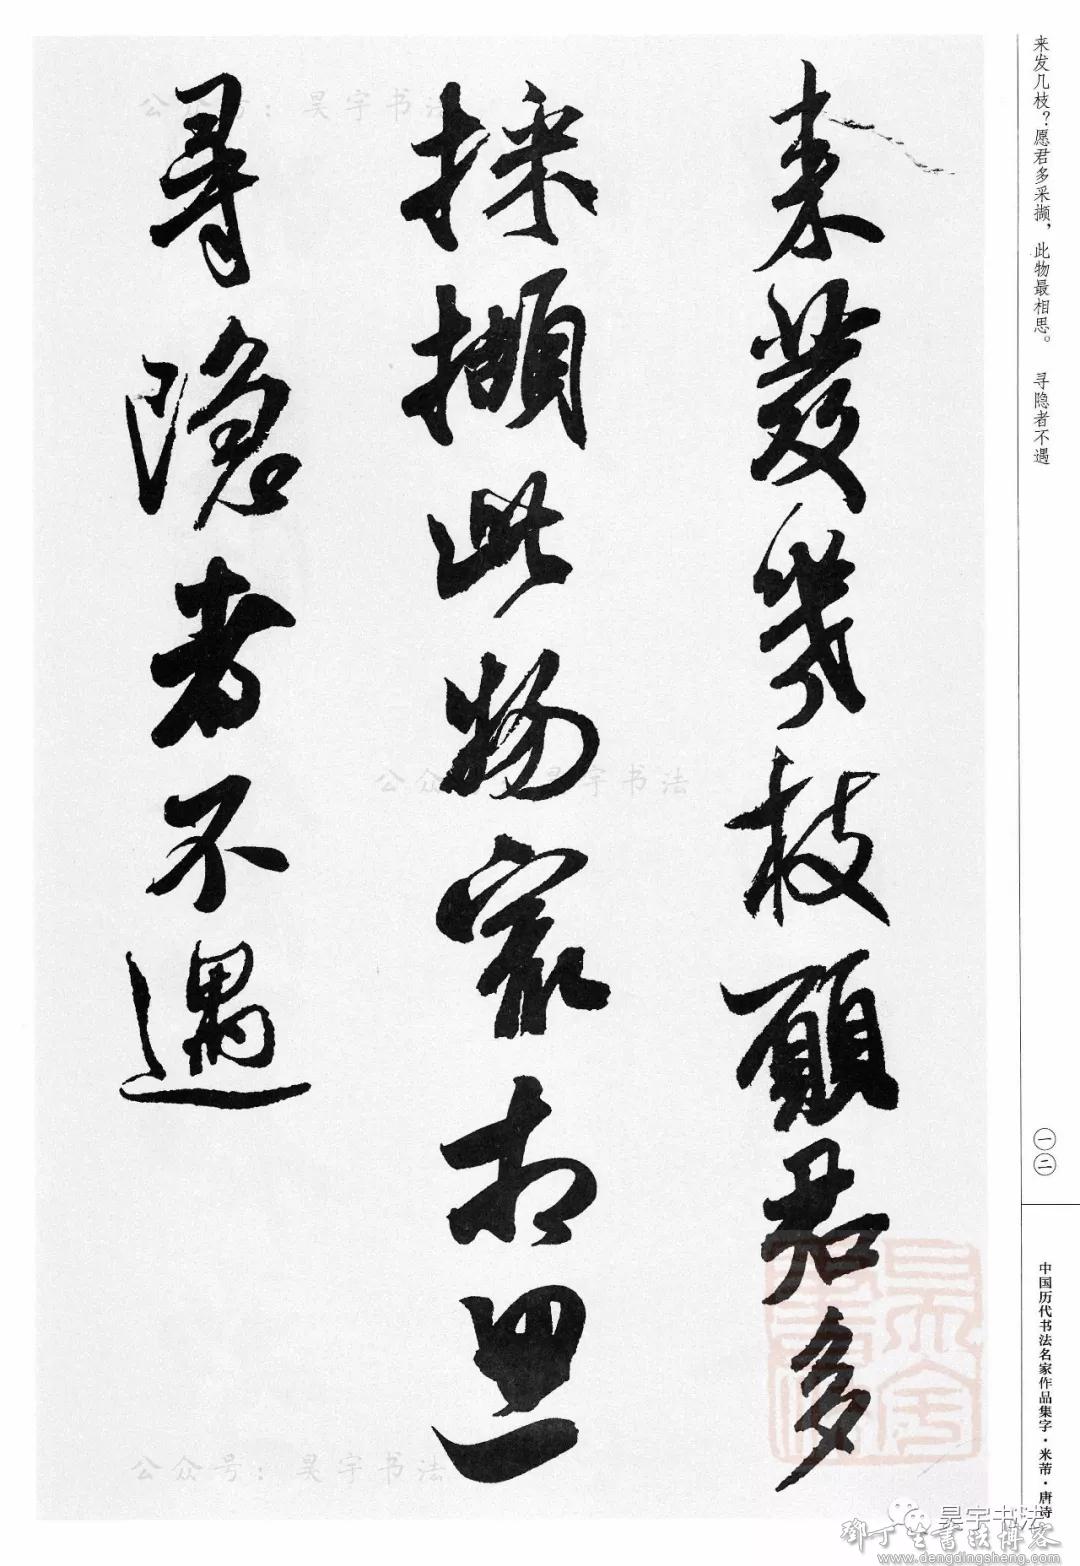 来发几枝？愿君多采撷，此物最相思。 寻隐者不遇
一二
中国历代书法名家作品集字·米芾·唐诗
来發幾枝願君多
採擷此物寂相思
尋隱者不遇
公众号：昊宇书法
公众号：昊宇书法
公众号：昊宇书法
昊宇书法
鄧丁生書法博客
www.dengdingsheng.com